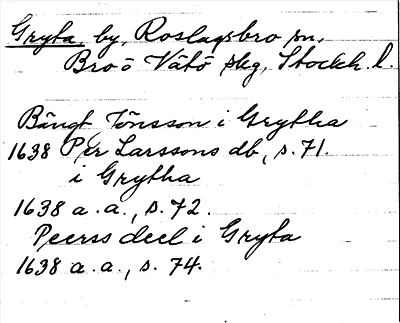 Gryta, by, Roslagsbro sn,
Bro o Vätö skg, Stockh. l.
Bängt Jönsson i Grytha
1638 Per Larssons db, s. 71.
i Grytha
1638 a. a., s. 72.
Peerss deel i Gryta
1638 a. a., s. 74.